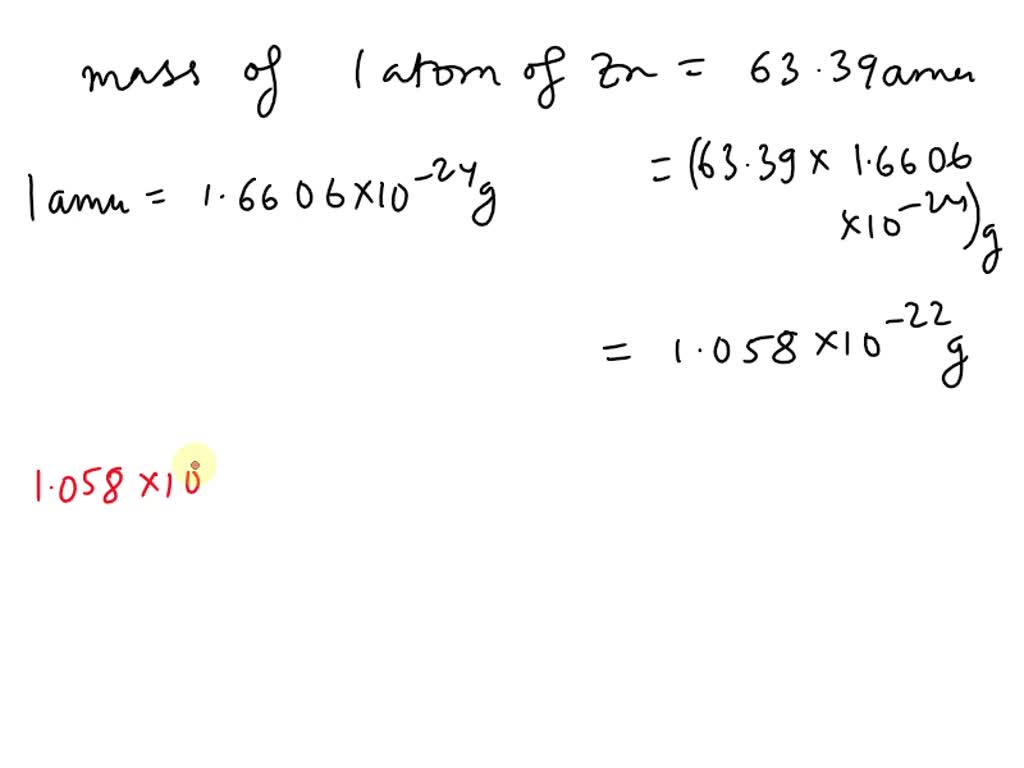 mass of 1 atom of Zn = 63.39 amu
1 amu = 1.6606×10^-24 g
= (63.39 × 1.6606
×10^-24) g
= 1.058 ×10^-22 g
1.058 ×10